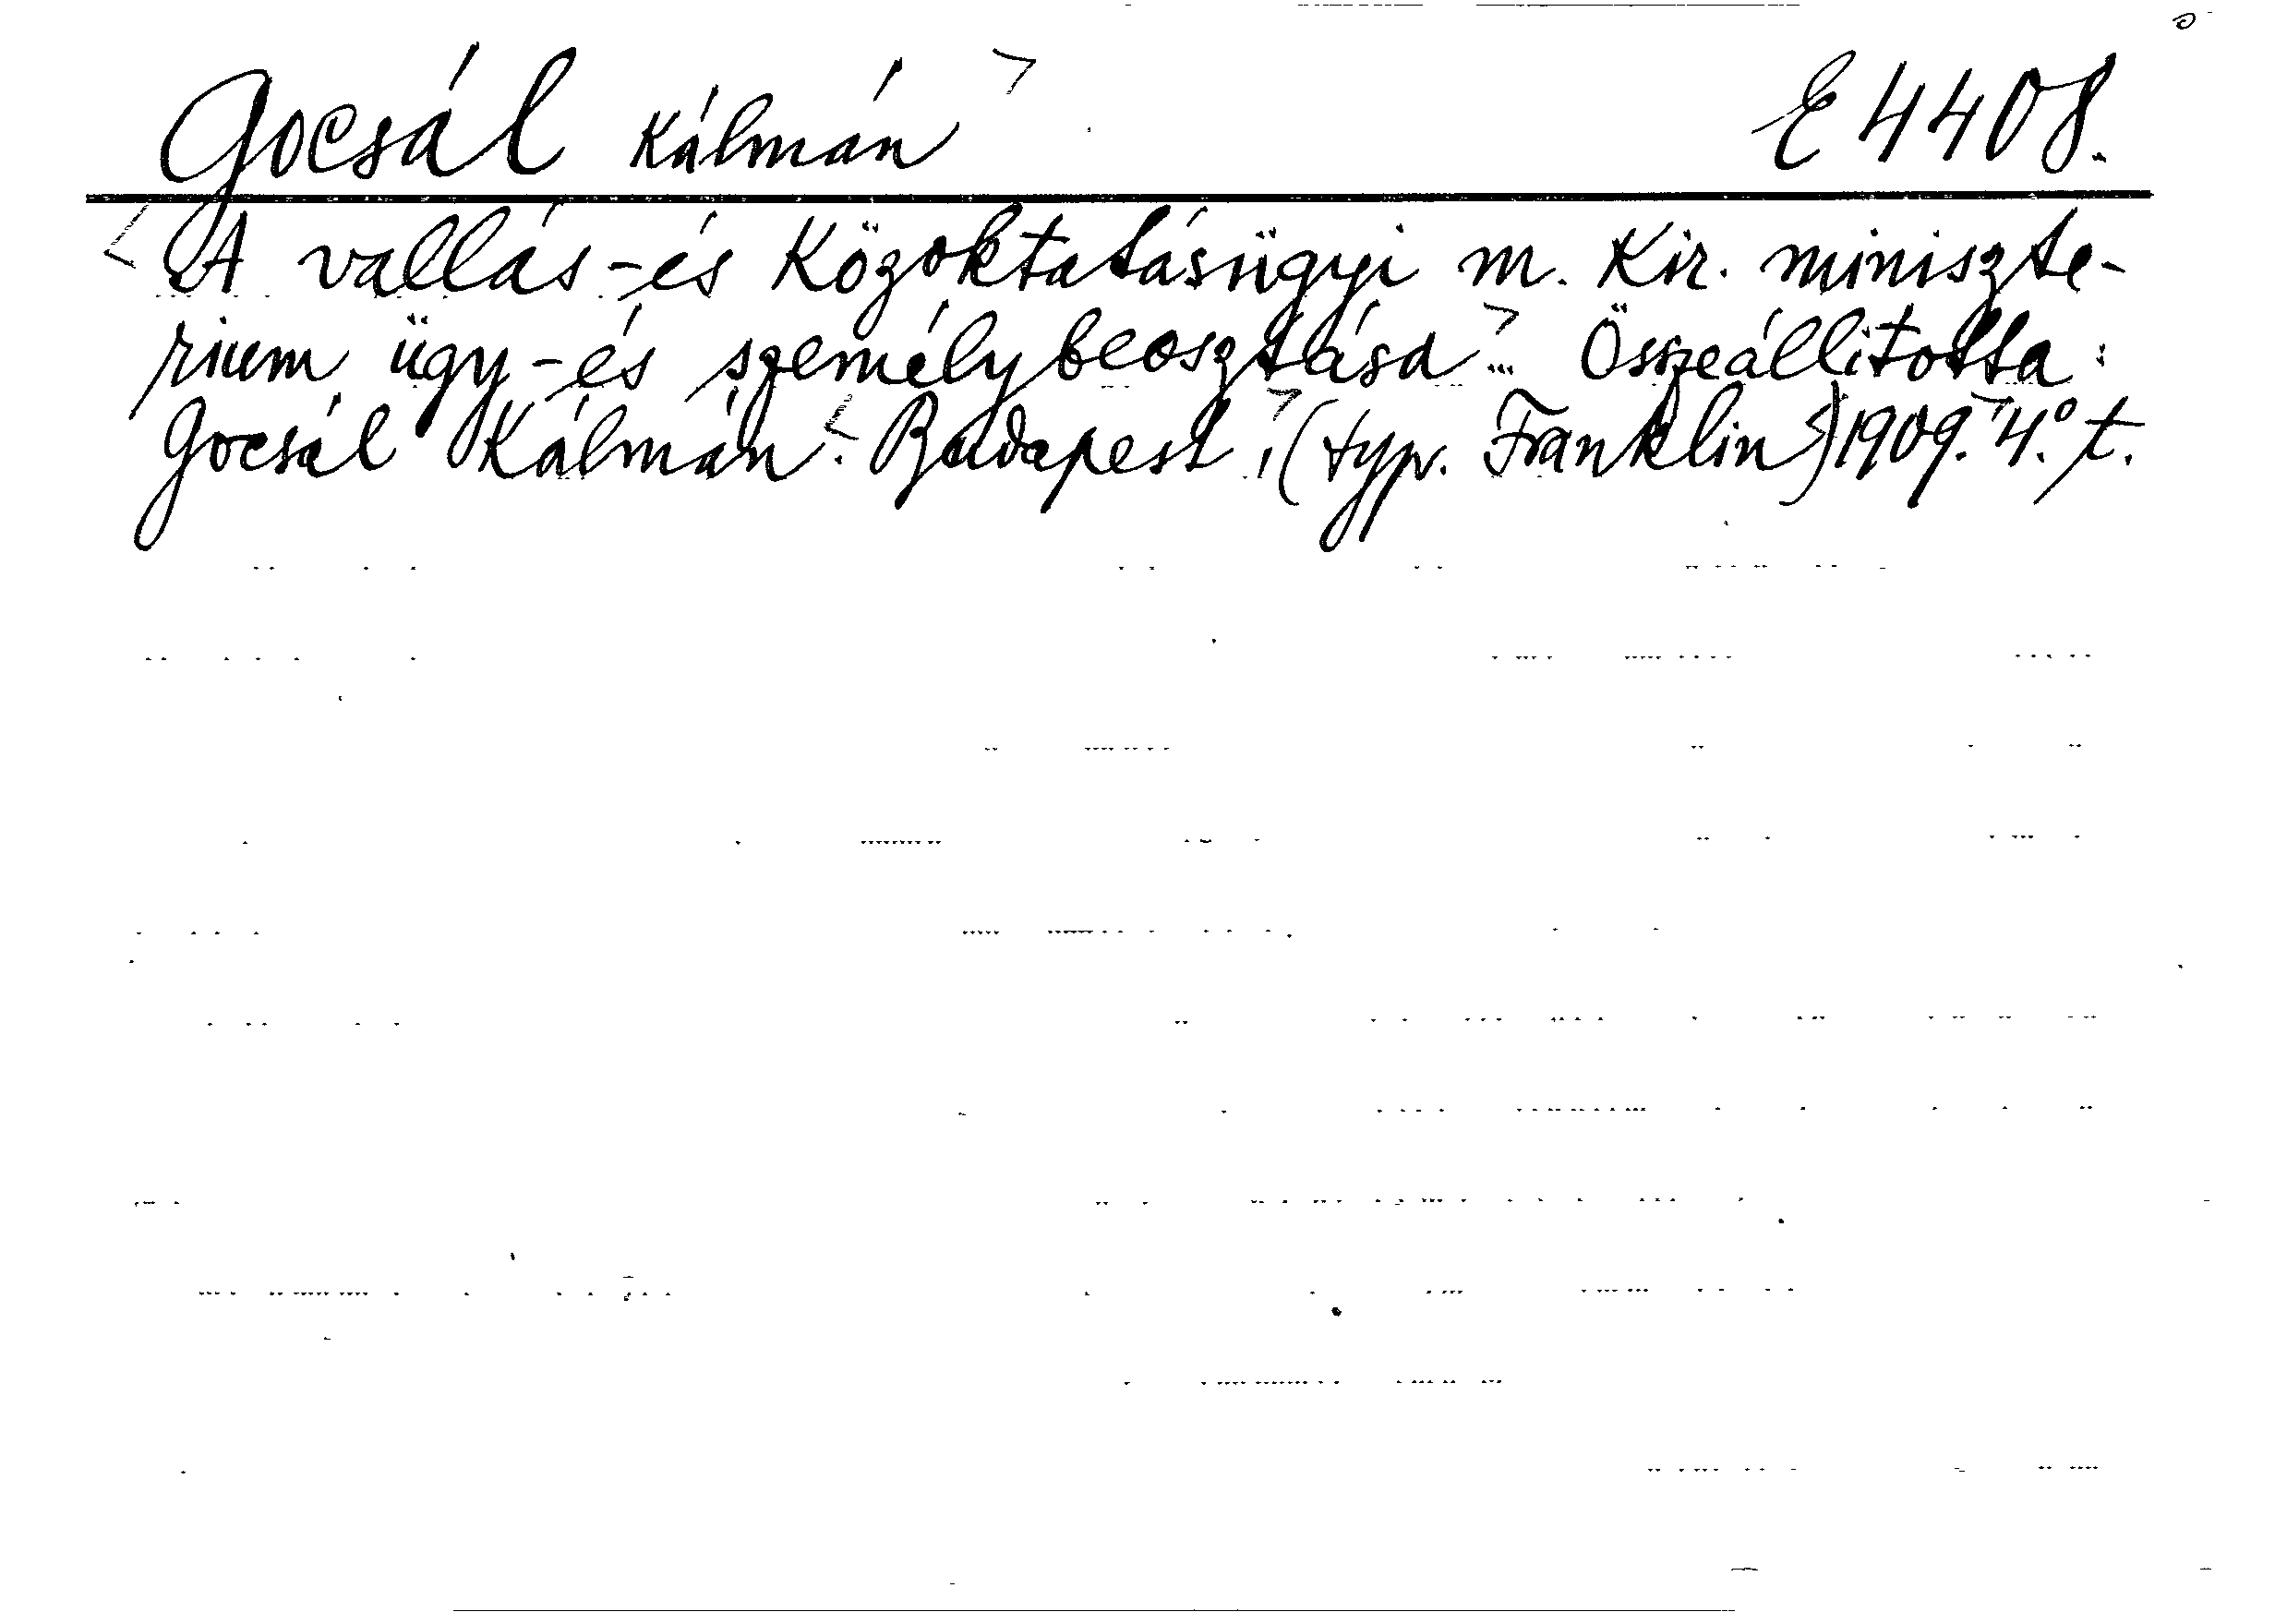 Gocsál Kálmán E 4408.
A vallás-és közoktatásügyi m. kir. miniszte-
rium ügy-és személybeosztása. Összeállitotta:
Gocsál Kálmán. Budapest, (typ. Franklin) 1909. 4.° t.